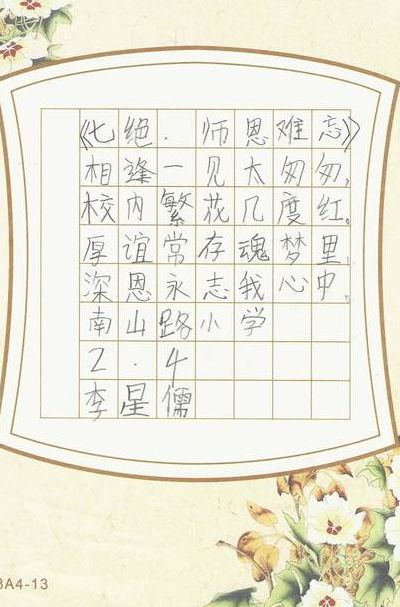 《七绝·师恩难忘》
相逢一见太匆匆,
校内繁花几度红。
厚谊常存魂梦里,
深恩永志我心中。
南山路小学
2.4
李星儒
3A4-13